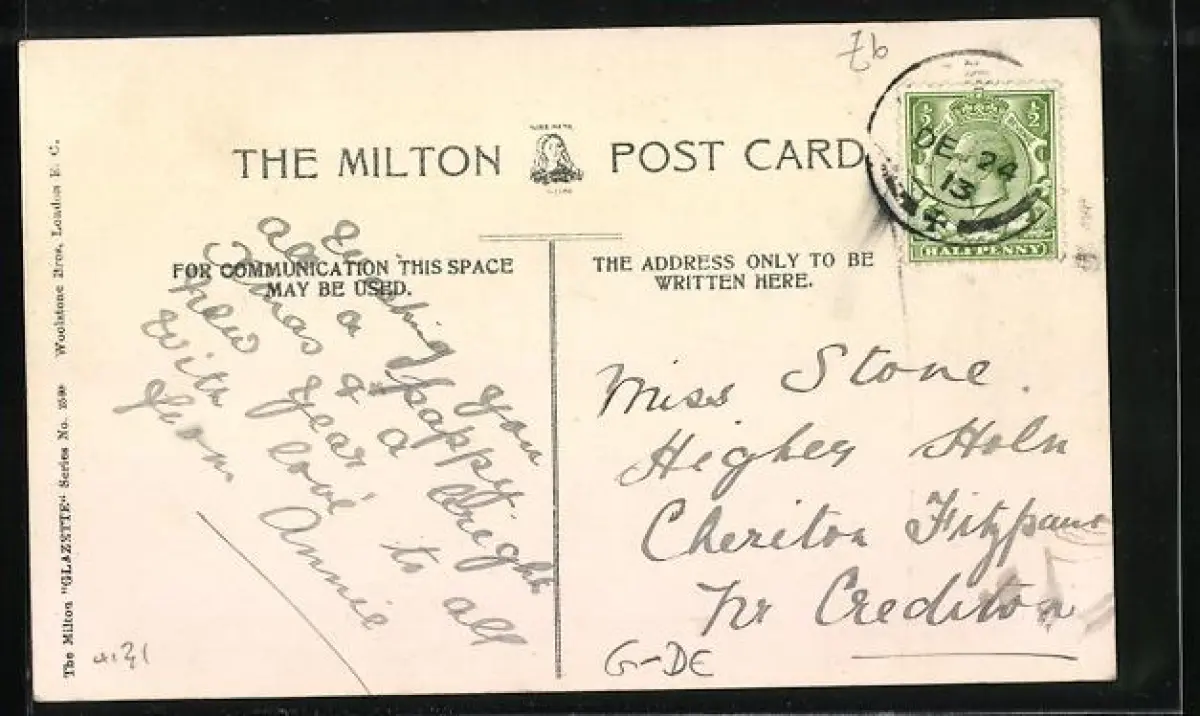 THE MILTON POST CARD
FOR COMMUNICATION THIS SPACE
MAY BE USED.
THE ADDRESS ONLY TO BE
WRITTEN HERE.
½ ½
HALFPENNY
DE 24
13
you
a happy bright
Xmas & a
new year
with love to all
from Annie
Miss Stone.
Higher Holn
Cheriton Fitzpaine
Nr Crediton
G-DE
The Milton "GLAZETTE" Series No. Woolstone Bros, London E. C.